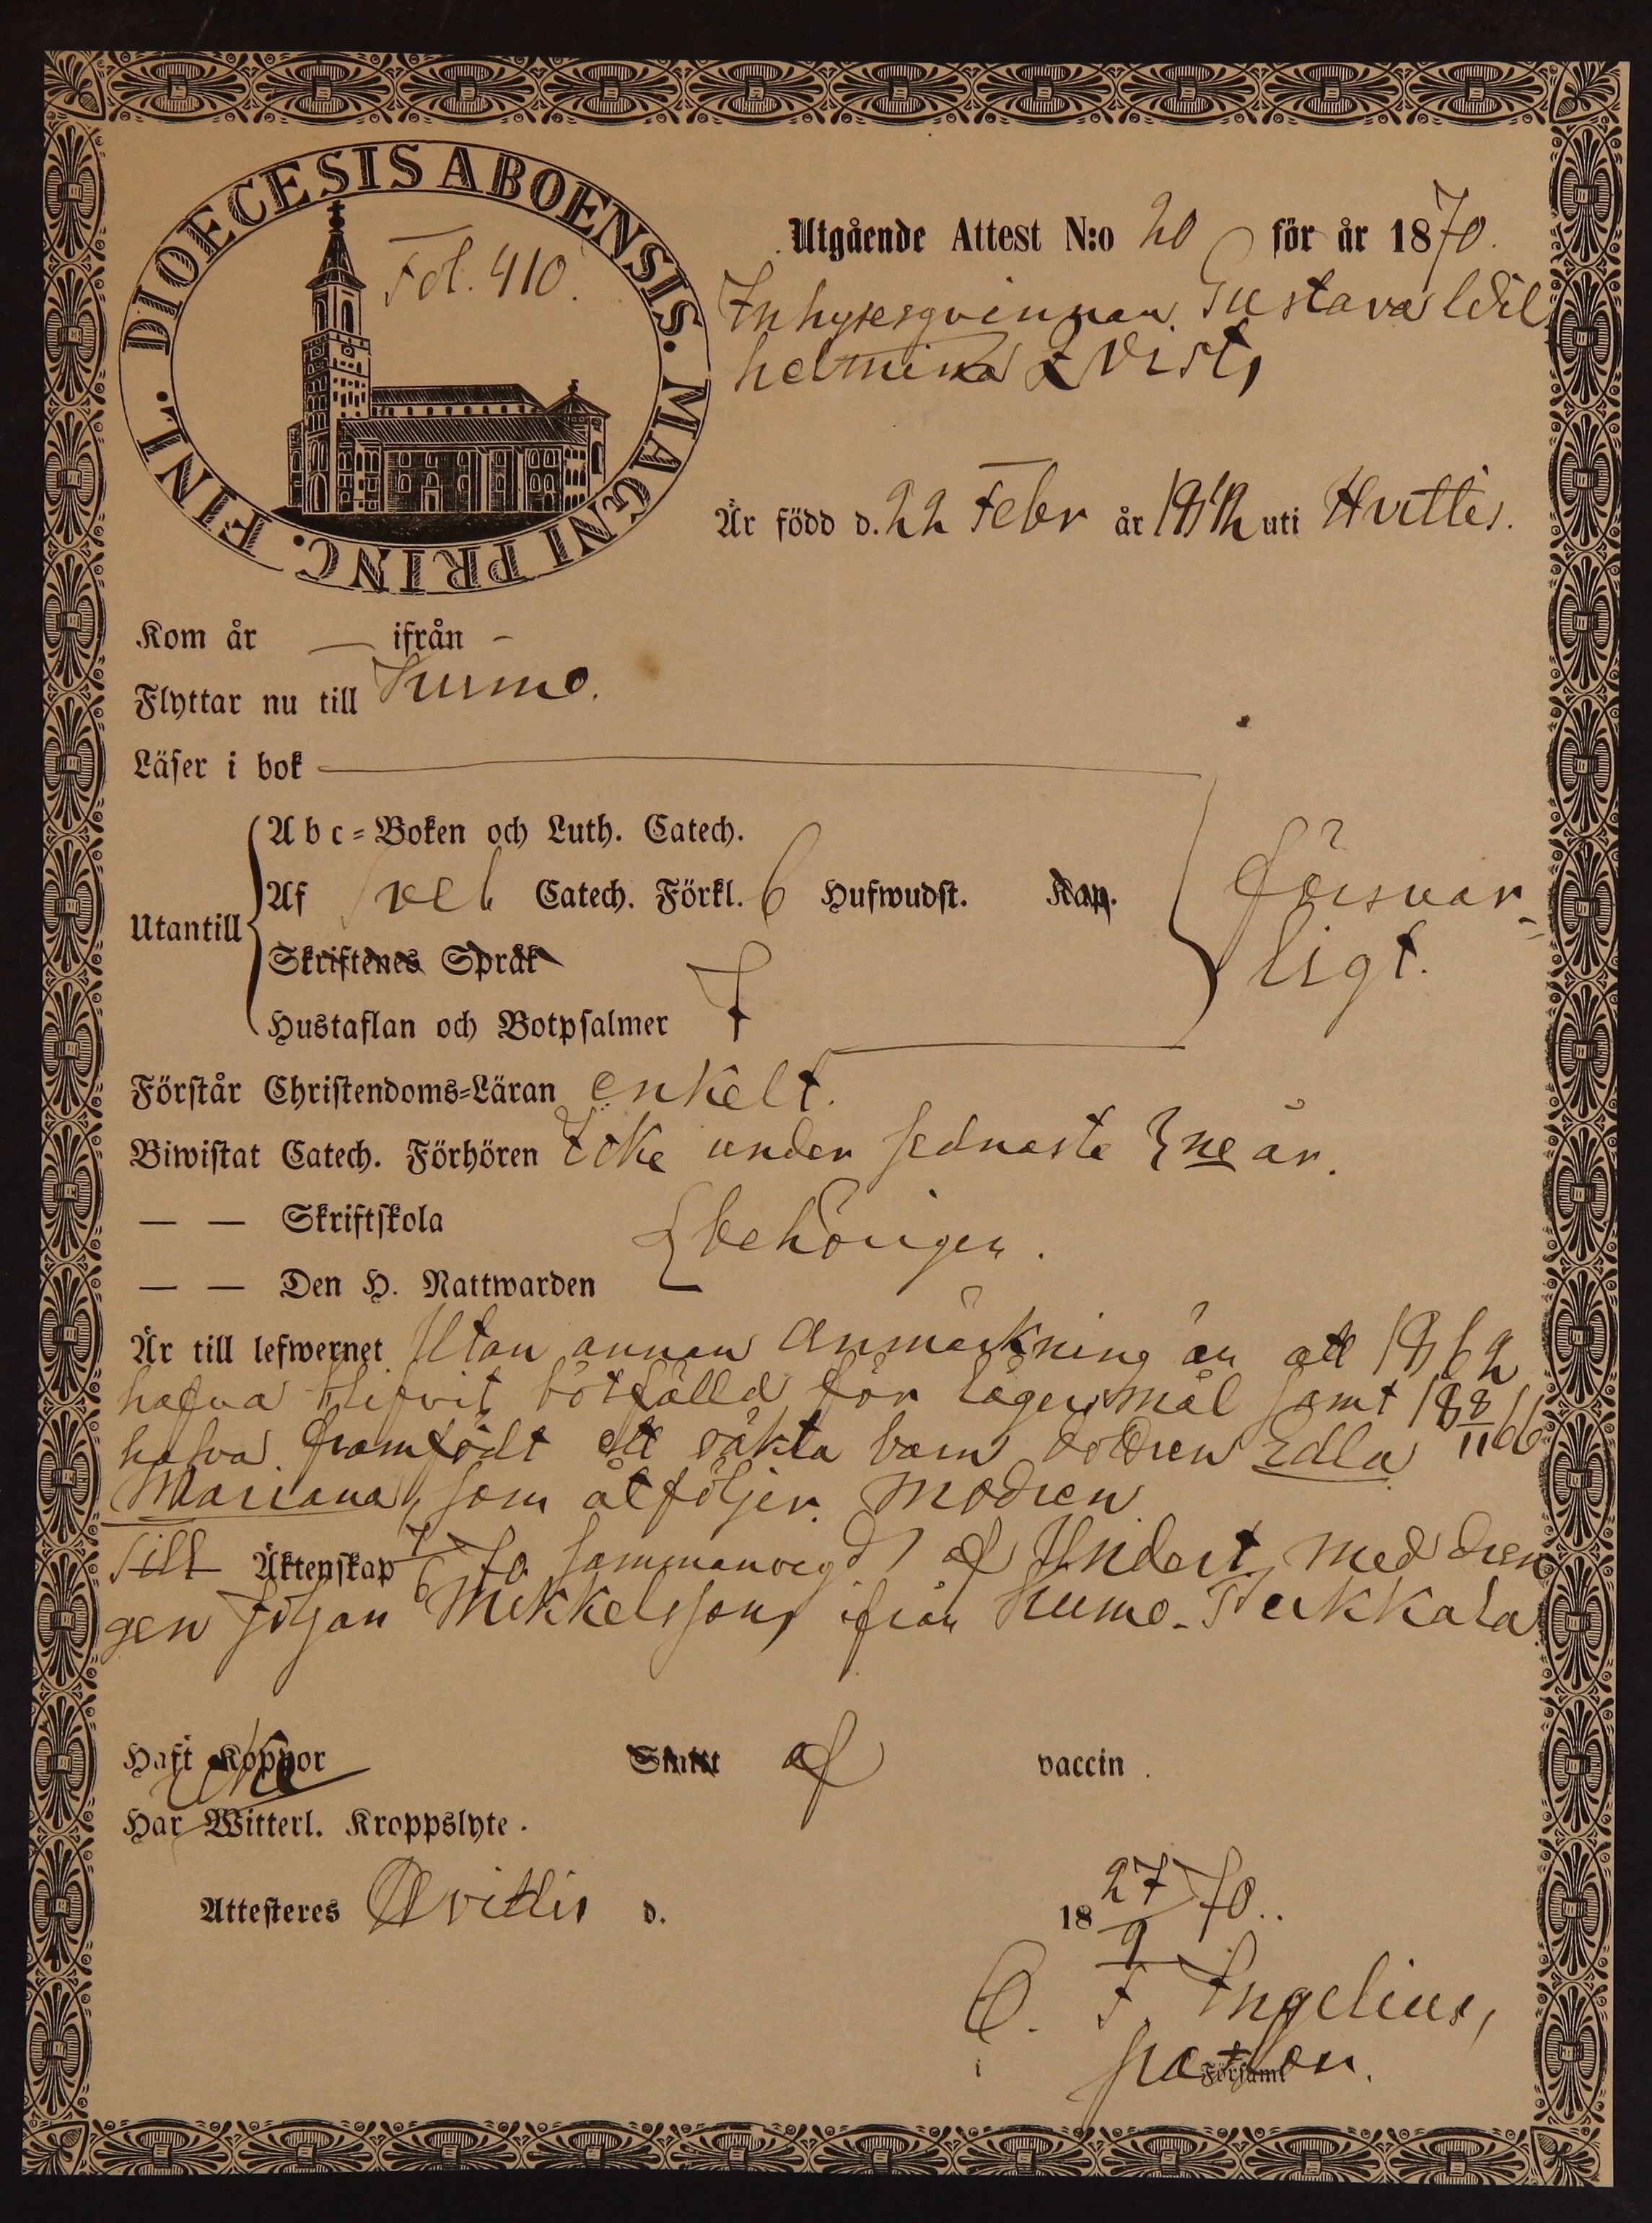 DIOECESIS ABOENSIS. MAGNI PRINC. FINL.
Fol. 410.
Utgående Attest N:o 20 för år 1870.
Inhysesqvinnan Gustava Wil
helmina Qvist,
Är född d. 22 Febr år 1842 uti Hvittis.
Kom år — ifrån -
Flyttar nu till Kumo.
Läser i bok
Abc=Boken och Luth. Catech.
Utantill
Af Sveb Catech. Förkl. 6 Hufwudst. Kap.
Skriftenes Språk
Hustaflan och Botpsalmer
försvar
ligt.
Förstår Christendoms=Läran enkelt.
Biwistat Catech. Förhören Icke under sednaste 3ne år.
— — Skriftskola
behörigen.
— — Den H. Nattwarden
Är till lefwernet Utan annan anmärkning än att 1862
hafva blifvit bötfälld för lägersmål samt 18 8/11 66
hafva framfödt ett oäkta barn dottren Edla
Mariana, som åtföljer modren
Till Äktenskap 70 sammanvigd af Undert. med dren
gen Johan Mikkelsson, ifrån Kumo
Haft Koppor
Smitt af vaccin.
Har Witterl. Kroppslyte.
Attesteres Hvittis d. 27/9 1870.
C. F. Ingelius,
pastor.
i Församl